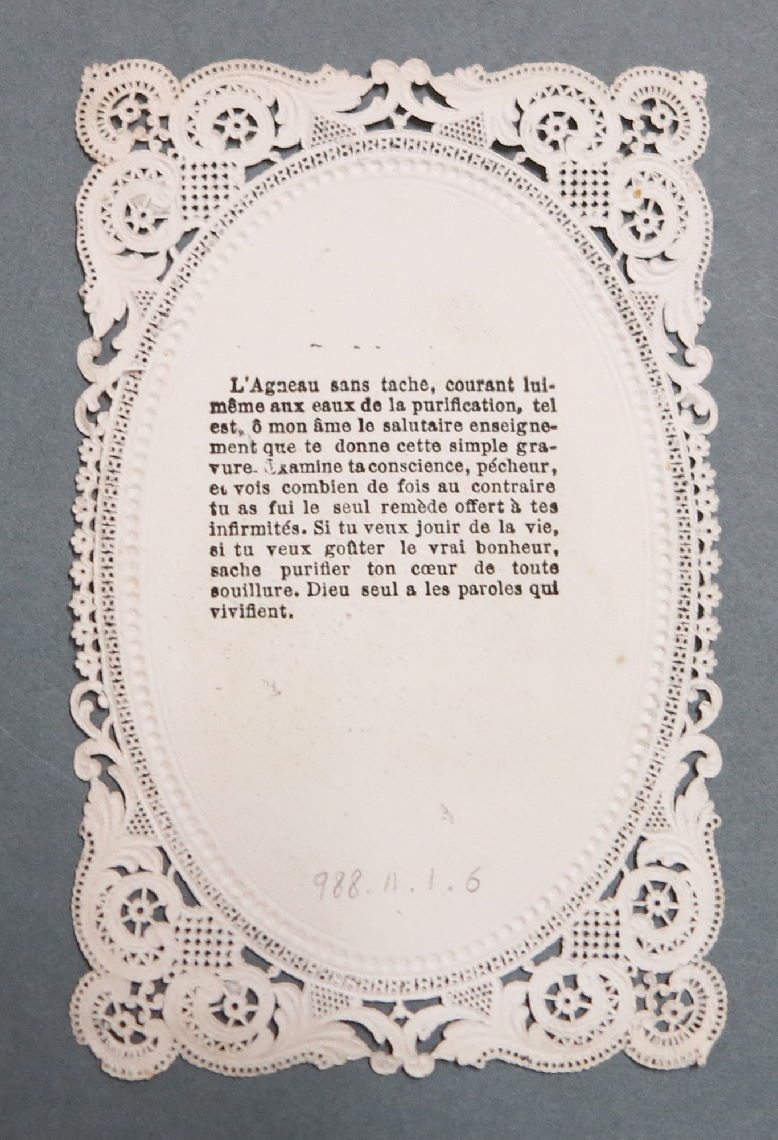 L'Agneau sans tache, courant lui-
même aux eaux de la purification, tel
est, ô mon âme le salutaire enseigne-
ment que te donne cette simple gra-
vure. Examine ta conscience, pécheur,
et vois combien de fois au contraire
tu as fui le seul remède offert à tes
infirmités. Si tu veux jouir de la vie,
si tu veux goûter le vrai bonheur,
sache purifier ton cœur de toute
souillure. Dieu seul a les paroles qui
vivifient.
988.11.1.6